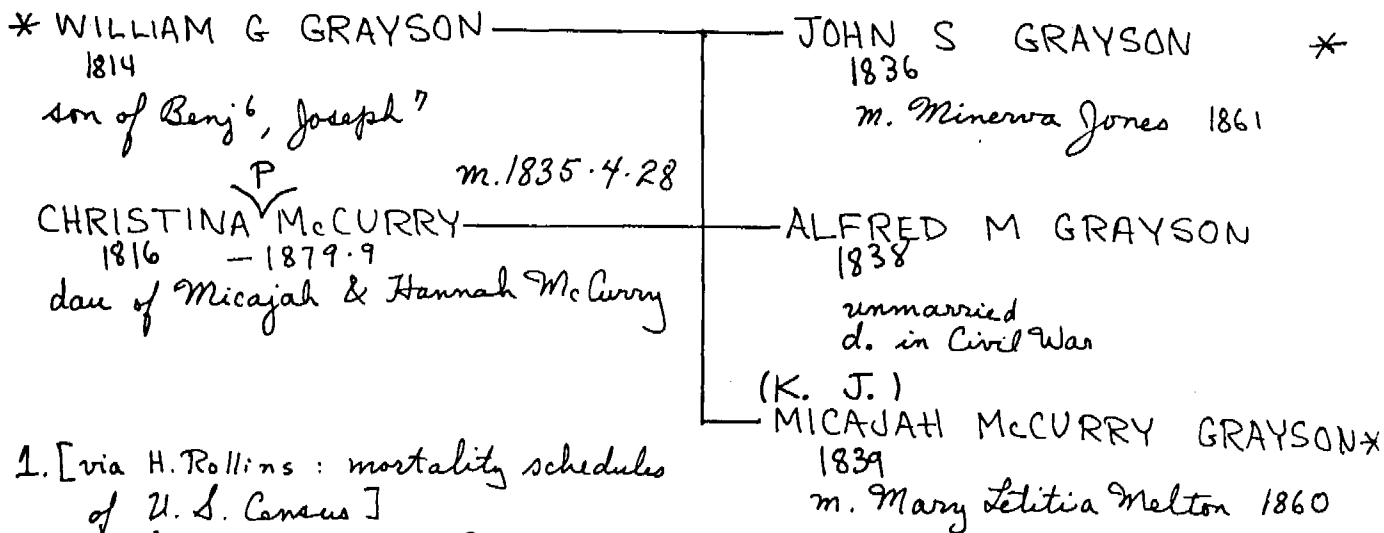 * WILLIAM G GRAYSON
1814
son of Benj⁶, Joseph⁷
m. 1835.4.28
P
CHRISTINA McCURRY
1816 – 1879.9
dau of Micajah & Hannah McCurry
1. [via H. Rollins : mortality schedules
of U. S. Census]
JOHN S GRAYSON *
1836
m. Minerva Jones 1861
ALFRED M GRAYSON
1838
unmarried
d. in Civil War
(K. J.)
MICAJAH McCURRY GRAYSON*
1839
m. Mary Letitia Melton 1860